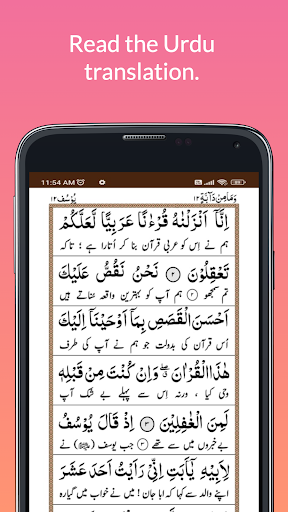 Read the Urdu
translation.
11:54 AM
وَمَا مِنْ دَآبَّةٍ ١٢
يُوْسُف ١٢
اِنَّاۤ اَنْزَلْنٰهُ قُرْءٰنًا عَرَبِيًّا لَّعَلَّكُمْ
ہم نے اِس کو عربی قرآن بنا کر اُتارا ہے تاکہ
تَعْقِلُوْنَ ﴿٢﴾ نَحْنُ نَقُصُّ عَلَيْكَ
تم سمجھو ﴿٢﴾ ہم آپ کو بہترین واقعہ سُناتے ہیں
اَحْسَنَ الْقَصَصِ بِمَاۤ اَوْحَيْنَاۤ اِلَيْكَ
اُس قرآن کی بدولت جو ہم نے آپ کی طرف
هٰذَا الْقُرْاٰنَ وَاِنْ كُنْتَ مِنْ قَبْلِهٖ
وحی کیا ، ورنہ اِس سے پہلے بے شک آپ
لَمِنَ الْغٰفِلِيْنَ ﴿٣﴾ اِذْ قَالَ يُوْسُفُ
بےخبروں میں سے تھے ﴿٣﴾ جب یوسف (ﷺ) نے
لِاَبِيْهِ يٰۤاَبَتِ اِنِّيْ رَاَيْتُ اَحَدَ عَشَرَ
اپنے والد سے کہا ابا جان ! میں نے خواب میں گیارہ